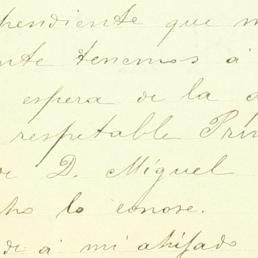 pendiente que m
nte tenemos á
espera de la a
respetable Prin
de D. Miguel
cho lo conose.
de á mi ahijado